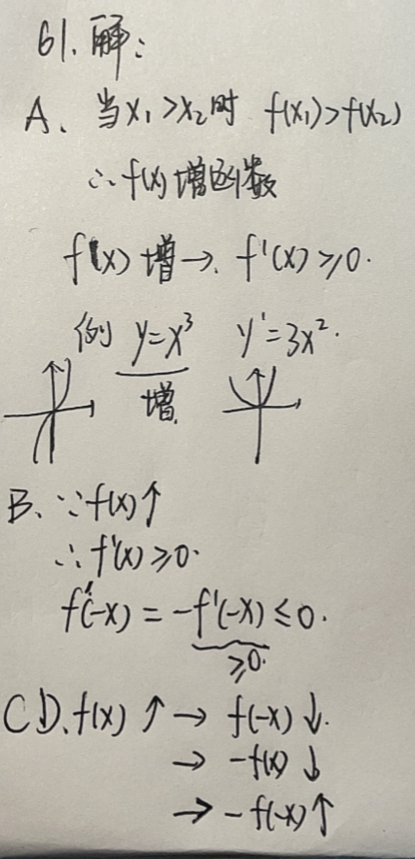 61.解:
A、当x₁>x₂时 f(x₁)>f(x₂)
∴f(x)增函数
f(x)增→. f'(x)≥0.
例 y=x³ y'=3x².
增
B、∵f(x)↑
∴f'(x)≥0.
f'(-x)=-f'(-x)≤0.
≥0.
CD、f(x)↑→f(-x)↓.
→-f(x)↓
→-f(-x)↑